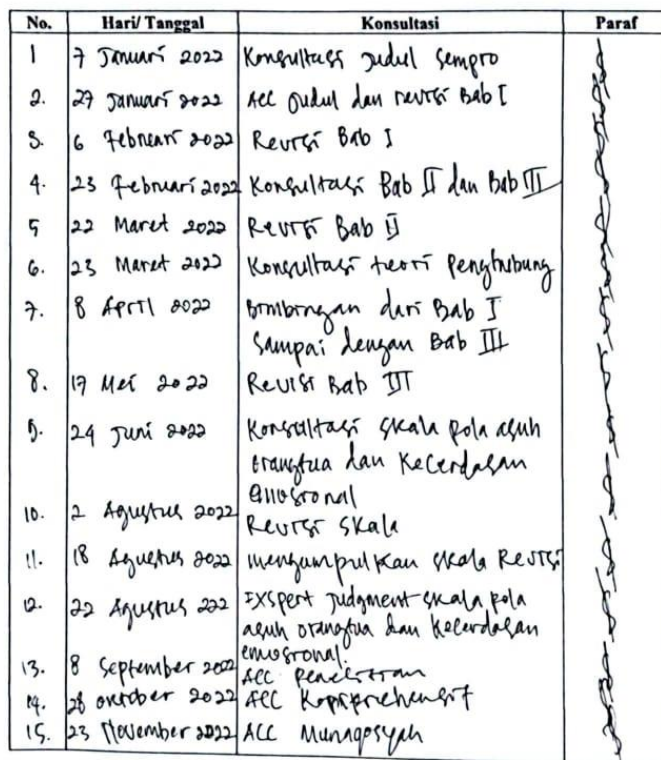 No. Hari/ Tanggal Konsultasi Paraf
1 7 Januari 2022 Konsultasi judul Sempro
2. 27 Januari 2022 Acc Judul dan revisi Bab I
3. 6 Februari 2022 Revisi Bab I
4. 23 Februari 2022 Konsultasi Bab II dan Bab III
5 22 Maret 2022 Revisi Bab II
6. 23 Maret 2022 Konsultasi teori Penghubung
7. 8 April 2022 Bimbingan dari Bab I
Sampai dengan Bab III
8. 17 Mei 2022 Revisi Bab III
9. 24 Juni 2022 Konsultasi Skala pola asuh
orangtua dan Kecerdasan
Emosional
10. 2 Agustus 2022 Revisi Skala
11. 18 Agustus 2022 mengumpulkan skala Revisi
12. 22 Agustus 222 Exspert Judgment skala pola
asuh orangtua dan kecerdasan
emosional.
13. 8 September 2022 Acc Penelitian
14. 28 oktober 2022 ACC
15. 23 November 2022 ACC Munaqosyah